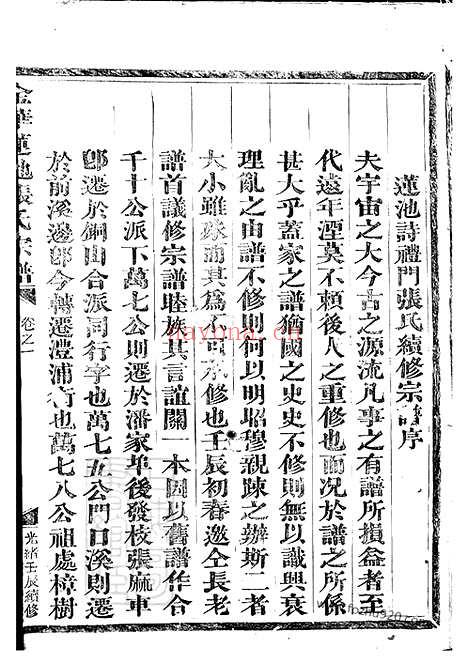 蓮池詩禮門張氏續修宗譜序
夫宇宙之大今古之源流凡事之有譜所損益者至
代遠年湮莫不賴後人之重修也而況於譜之所係
甚大乎蓋家之譜猶國之史史不修則無以識興衰
理亂之由譜不修則何以明昭穆親疎之辦斯二者
大小雖殊而其為不可不修也壬辰初春邀仝長老
譜首議修宗譜睦族其言誼關一本因以舊譜作合
千十公派下萬七公則遷於潘家埠後發枝張麻車
郎遷於銅山合派同行字也萬七五公門口溪則遷
於前溪邊郎今轉遷澧浦衙也萬七八公祖處樟樹
金華蓮池張氏宗譜
卷之一
光緒壬辰續修